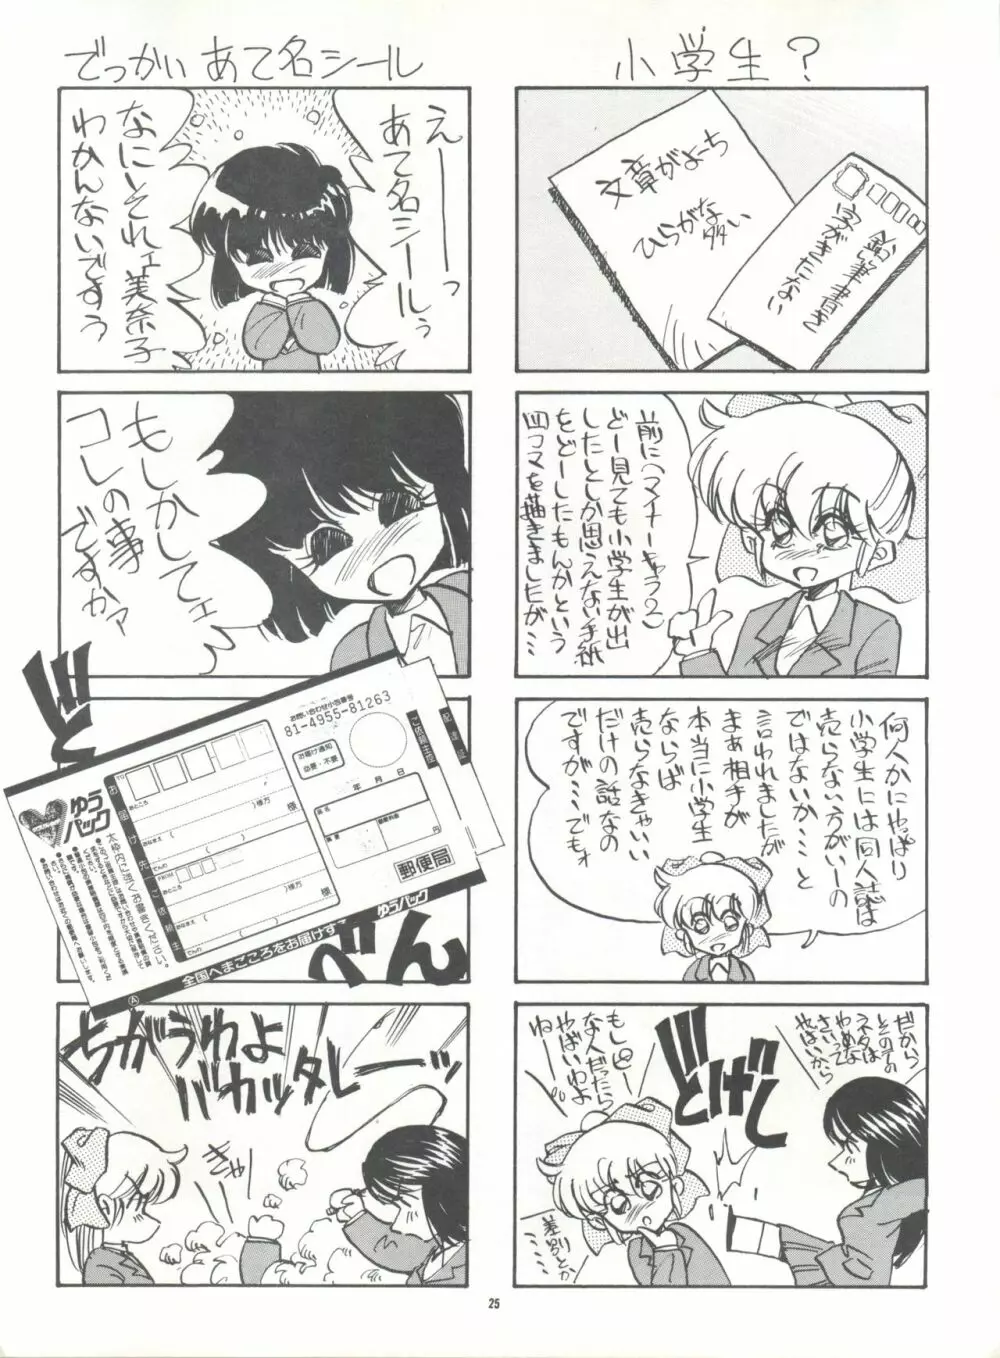 小学生?
文章がよーち
ひらがな
多い
鉛筆書き
字がきたない
前に(マイナーキャラ2)
どー見ても小学生が出
したとしか思えない手紙
をどーしたもんかという
四コマを描きましたが…
何人かにやっぱり
小学生には同人誌は
売らない方がいーの
ではないか…と
言われましたが
まぁ相手が
本当に小学生
ならば
売らなきゃいい
だけの話なの
ですが…でもォ
もしピー
な人だったら
やばいわよ
ねー
だから
そのての
ネタは
やめな
さいって
やばいから
どげし
差別とか
……
でっかいあて名シール
えーーっ
あて名シールぅ
なにィそれェ美奈子
わかんないですぅ
もしかしてェ
コレの事
ですかァ
ど
べん
お問い合わせ小包番号
81-4955-81263
お届け通知
必要・不要
ご依頼主控
配達証
年 月 日
TO
おところ
おなまえ( )様方
様
でんわ ( )
FROM
おところ
おなまえ( )様方
様
でんわ ( )
お届け先
ご依頼主
品名
郵便料金
円
郵便局
ゆう
パック
太枠内に強くお書きください。
ゆうパック
全国へまごころをお届けす
A
ちがうわよ
バカッタレーッ
きゃッ
25